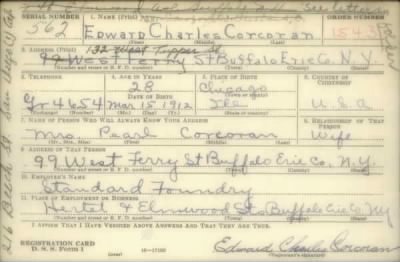 SERIAL NUMBER 1. NAME (Print) ORDER NUMBER
562 Edward Charles Corcoran 1543
(First) (Middle) (Last)
2. ADDRESS (Print)
132 West Tupper St
99 West Ferry St Buffalo Erie Co. N.Y.
3. TELEPHONE 4. AGE IN YEARS 5. PLACE OF BIRTH 6. COUNTRY OF CITIZENSHIP
28 Chicago
DATE OF BIRTH
Gr 4654 Mar 15 1912 Ill U.S.A
(Exchange) (Number) (Mo.) (Day) (Yr.) (State or country)
7. NAME OF PERSON WHO WILL ALWAYS KNOW YOUR ADDRESS 8. RELATIONSHIP OF THAT PERSON
Mrs. Pearl Corcoran Wife
(Mr., Mrs., Miss) (First) (Middle) (Last)
9. ADDRESS OF THAT PERSON
99 West Ferry St Buffalo Erie Co, N.Y.
(Number and street or R. F. D. number) (Town) (County) (State)
10. EMPLOYER'S NAME
Standard Foundry
11. PLACE OF EMPLOYMENT OR BUSINESS
Hertel & Elmwood Sts Buffalo Erie Co. NY
(Number and street or R. F. D. number) (Town) (County) (State)
I AFFIRM THAT I HAVE VERIFIED ABOVE ANSWERS AND THAT THEY ARE TRUE.
REGISTRATION CARD
D. S. S. FORM 1 (over) 16—17105 Edward Charles Corcoran
(Registrant's signature)